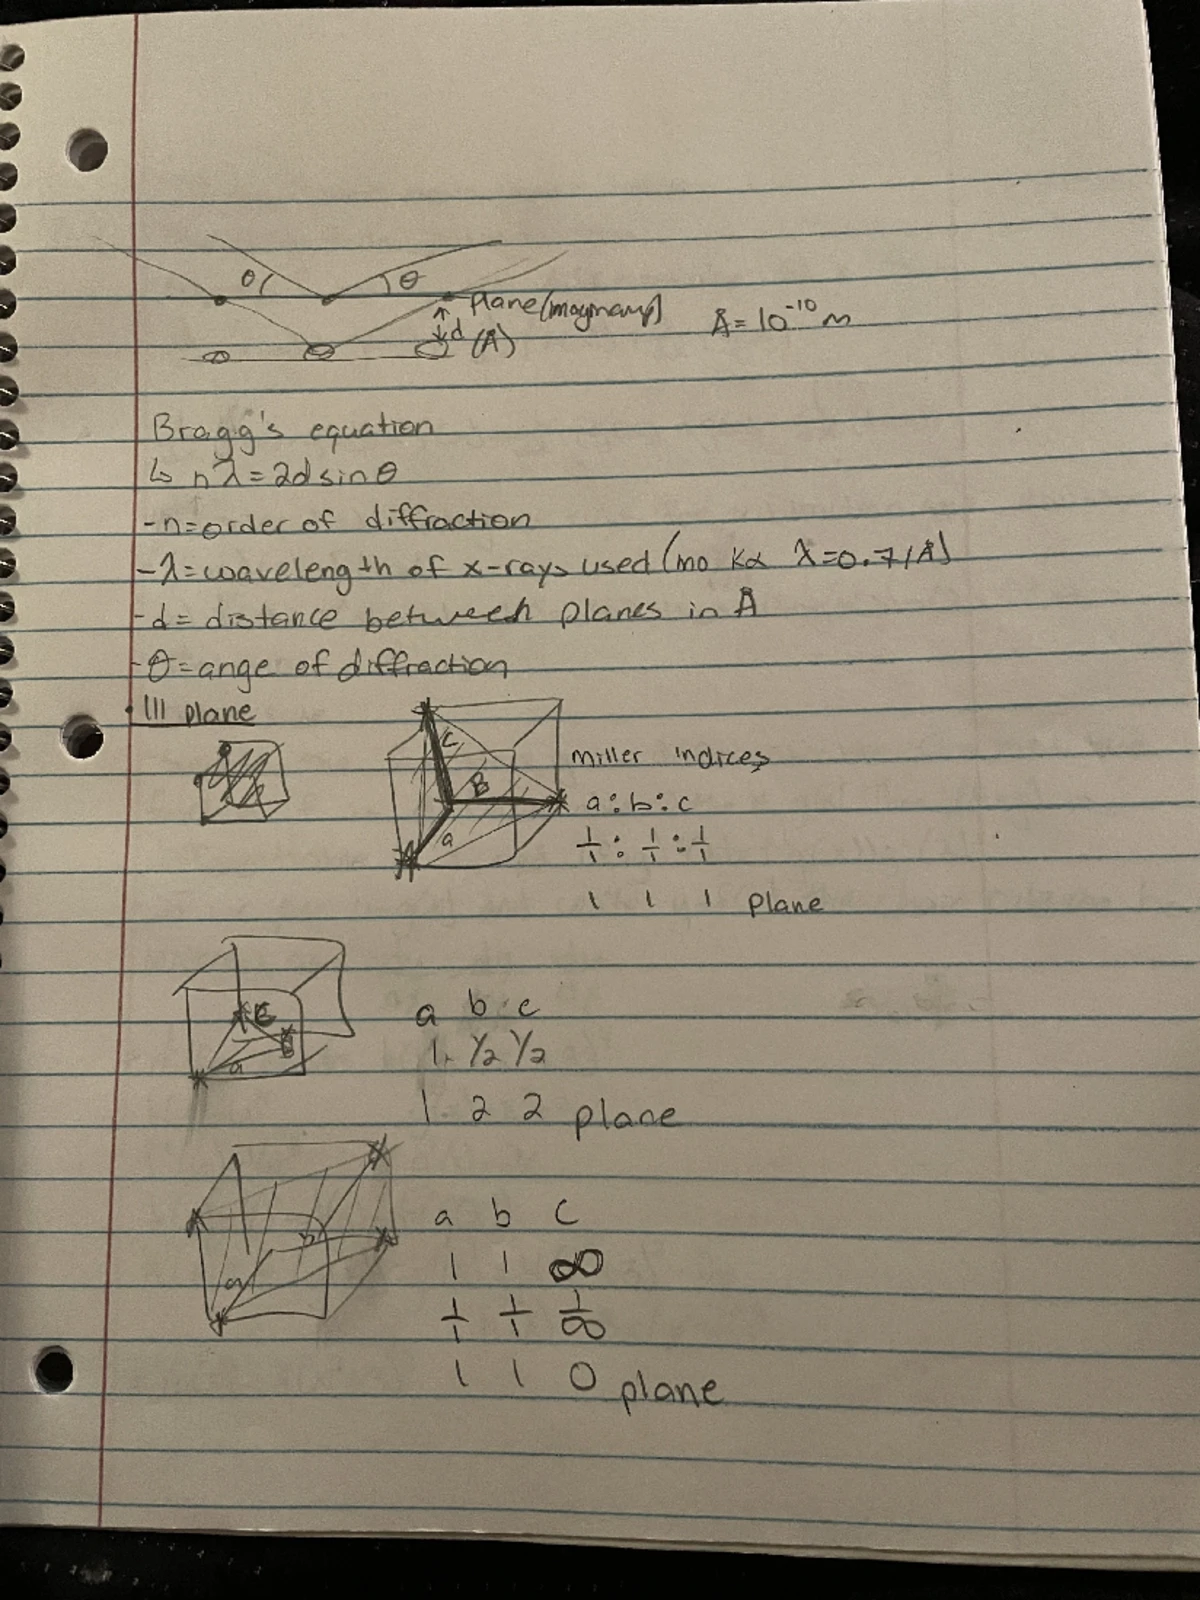 θ θ
plane (imaginary)
d (Å) Å = 10⁻¹⁰ m
Bragg's equation
↳ nλ = 2d sin θ
- n = order of diffraction
- λ = wavelength of x-rays used (mo Kα λ = 0.71Å)
- d = distance between planes in Å
- θ = ange of diffraction
• 111 plane
C
B
a
Miller indices
a : b : c
1/1 : 1/1 : 1/1
1 1 1 plane
a
a b c
1 1/2 1/2
1 2 2 plane
b
a
a b c
1 1 ∞
1/1 1/1 1/∞
1 1 0 plane